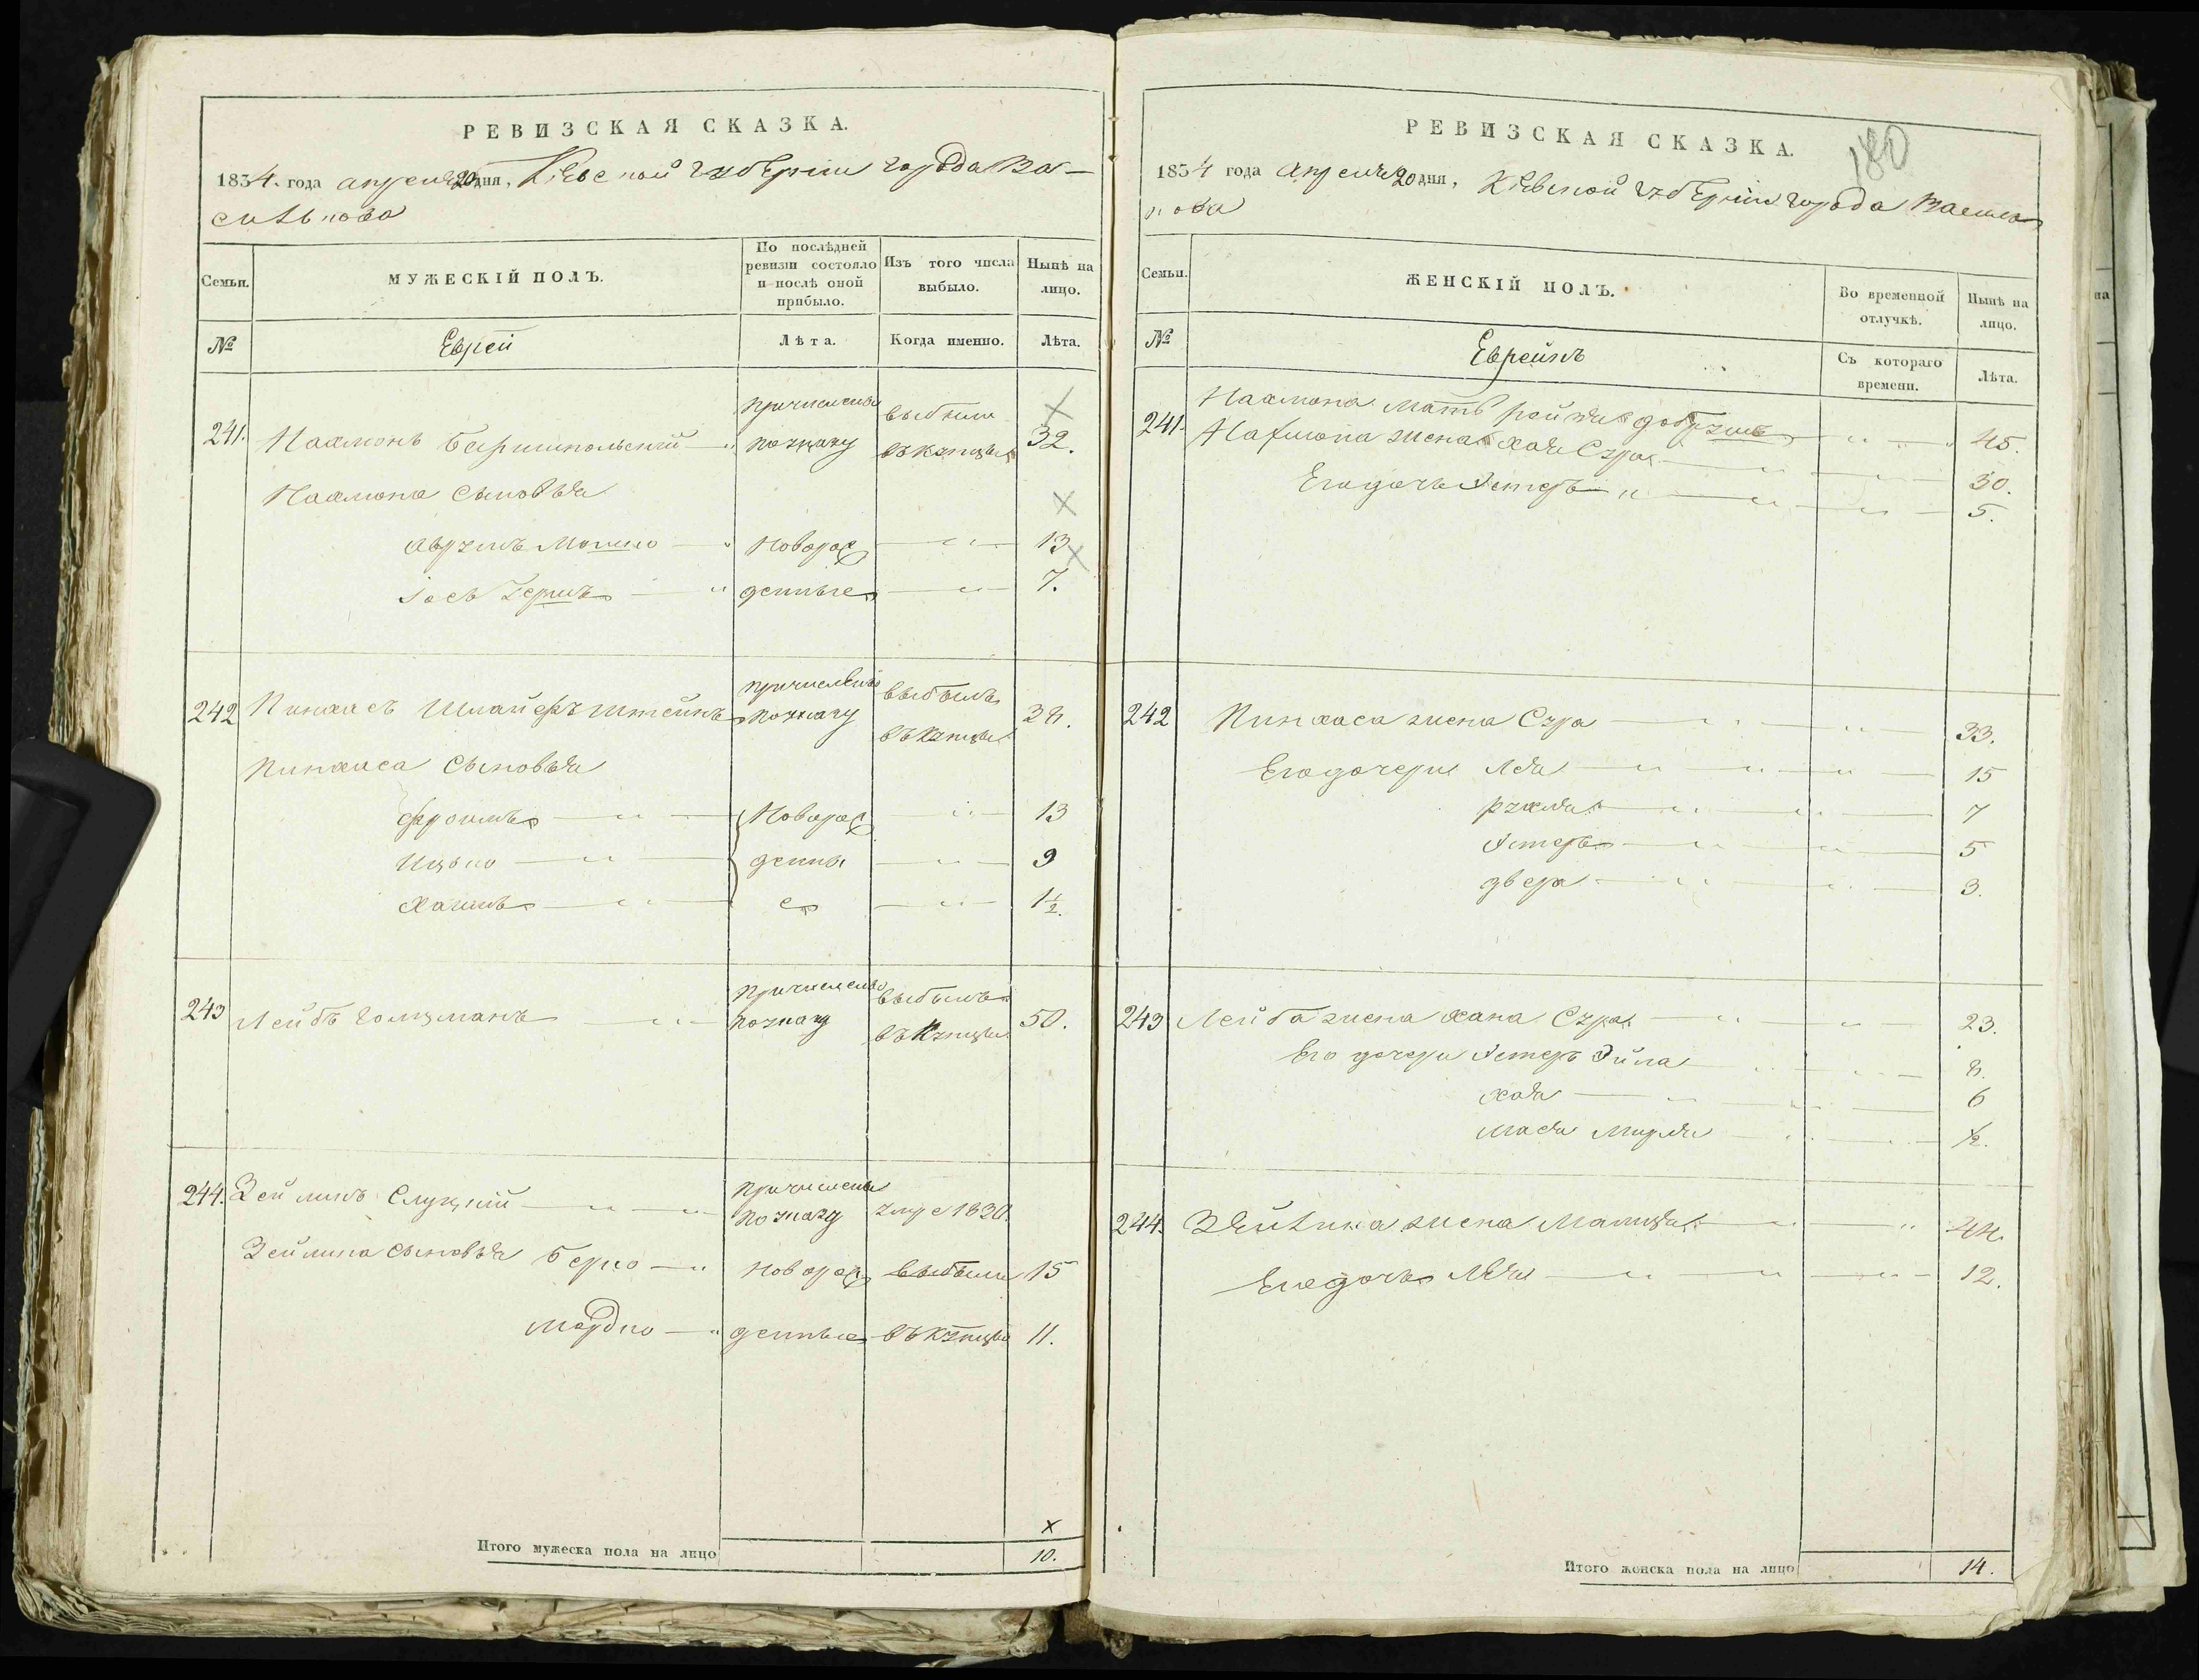 РЕВИЗСКАЯ СКАЗКА.
1854. года апреля 20 дня, Кіевской губерніи города Ва-
силькова
Семьи. МУЖЕСКІЙ ПОЛЪ. По послѣдней ревизіи состояло и послѣ оной прибыло. Изъ того числа выбыло. Нынѣ на лицо.
№ Еврей Лѣта. Когда именно. Лѣта.
241. Нахмонъ Баришпольскій причислены по указу выбыли въ купцы 32.
Нахмона сыновья
Аврумъ Мошко новорож 13
Іось Гершъ денные 7.
242 Пинхасъ Шлайферштейнъ причисленъ по указу выбылъ въ купцы 38.
Пинхаса сыновья
Фроимъ Новорож 13
Ицько денны 9
Хаимъ е 1½.
243 Лейбъ Голцманъ причислено по указу выбылъ въ купцы 50.
244. Зейликъ Слуцкій причислены по указу
Зейлика сыновья Берко новорож выбыли 15
Мордко денные въ купцы 11.
Итого мужеска пола на лицо х 10.
РЕВИЗСКАЯ СКАЗКА. 180
1854 года апреля 20 дня, Кіевской губерніи города Василь
кова
Семьи. ЖЕНСКІЙ ПОЛЪ. Во временной отлучкѣ. Нынѣ на лицо.
№ Еврейкъ Съ котораго времени. Лѣта.
241. Нахмона мать 45.
Нахмона жена Хая Сура 30.
Его дочь Эстеръ 5.
242 Пинхаса жена Сура 33.
Его дочери Лея 15
Рухля 7
Эстеръ 5
Двера 3.
243 Лейба жена Хана Сура 23.
Его дочери Эстеръ Эйла 8.
Хая 6
Мася Мирля ½.
244. Зейлика жена Малця 44.
Его дочь Лея 12.
Итого женска пола на лицо 14.